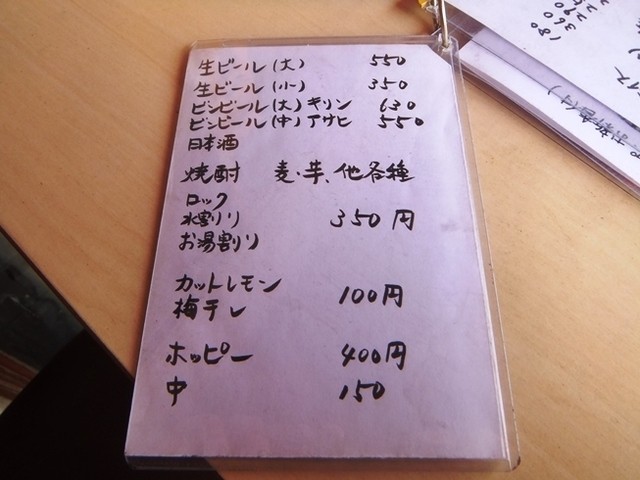 生ビール(大) 550
生ビール(小) 350
ビンビール(大)キリン 630
ビンビール(中)アサヒ 550
日本酒
焼酎 麦・芋、他各種
ロック
水割り 350円
お湯割り
カットレモン 100円
梅干し
ホッピー 400円
中 150
180
360